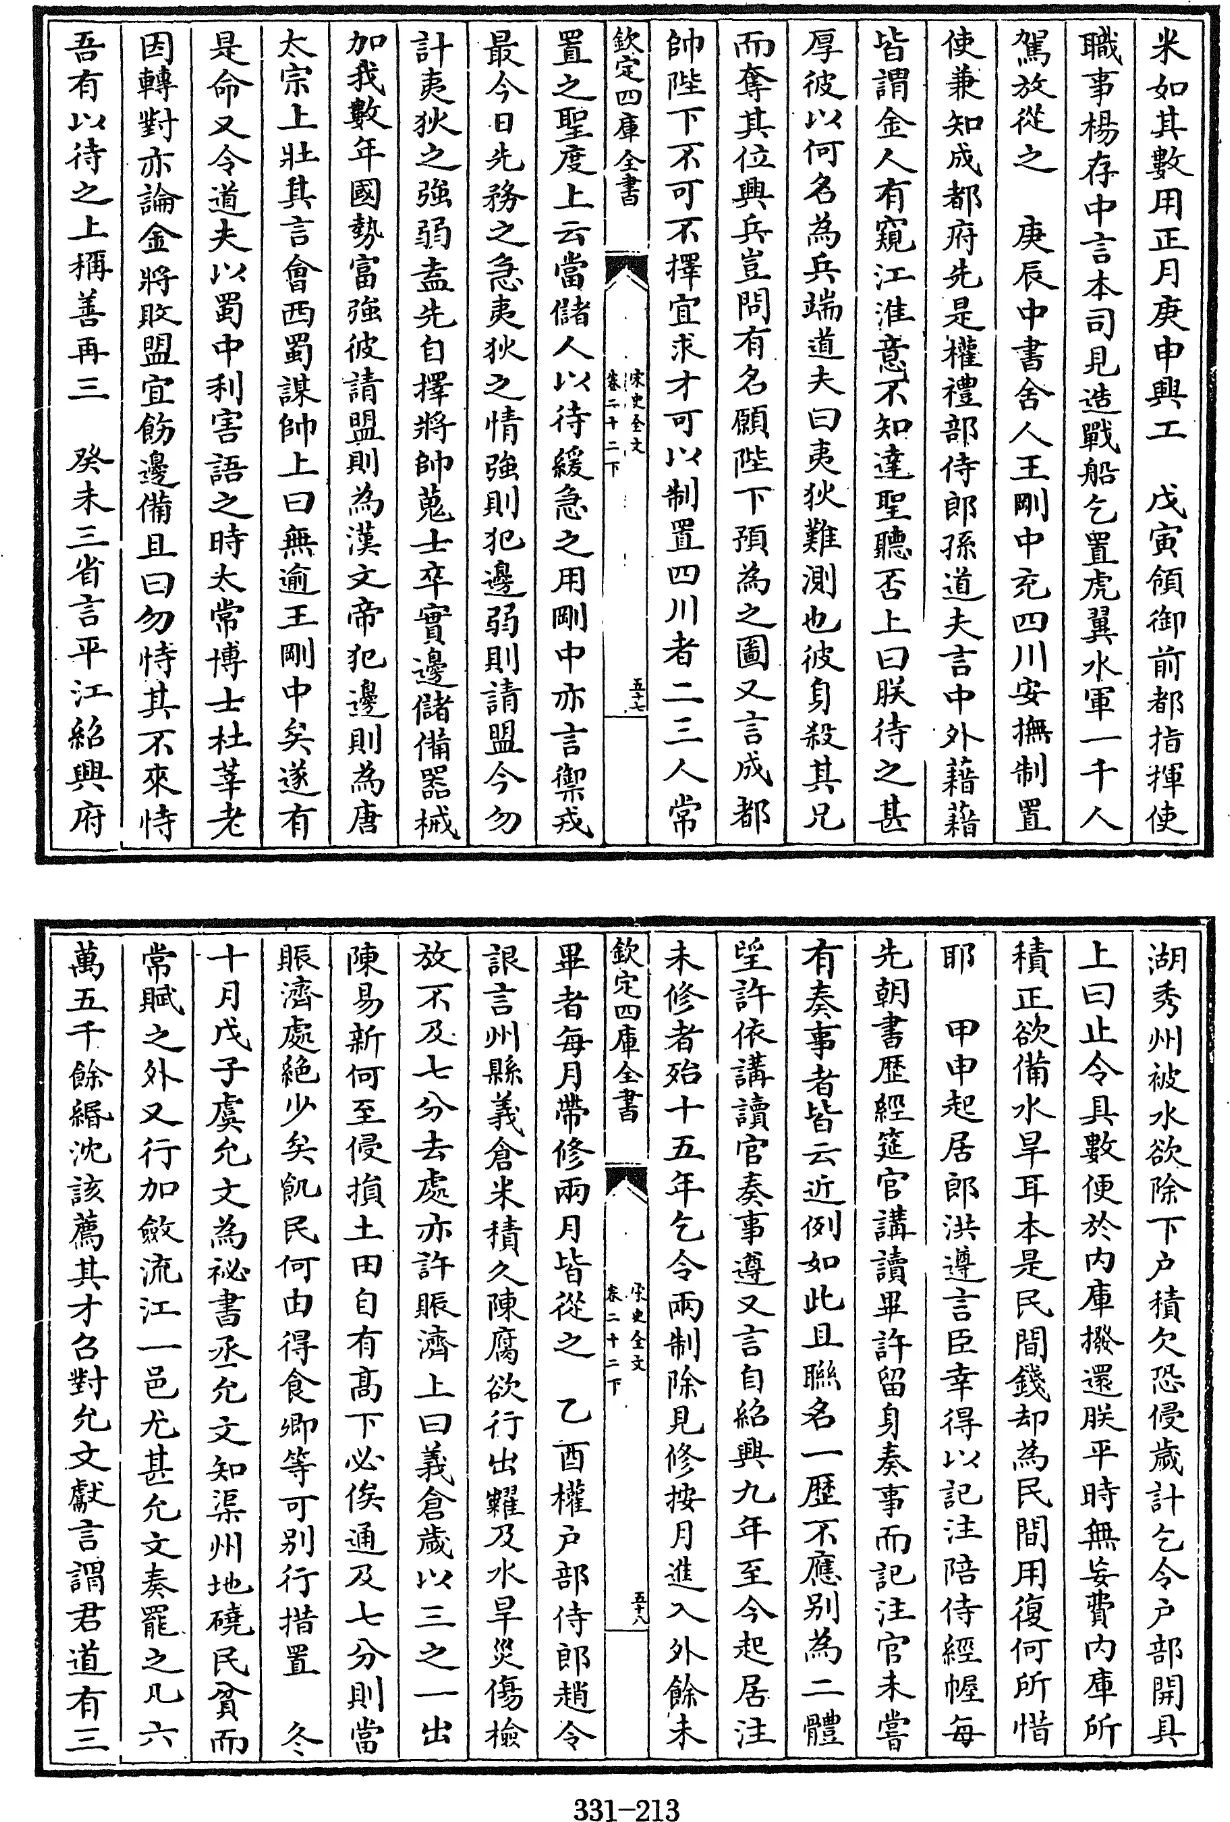 米如其數用正月庚申興工　戊寅領御前都指揮使
職事楊存中言本司見造戰船乞置虎翼水軍一千人
駕放從之　庚辰中書舍人王剛中充四川安撫制置
使兼知成都府先是權禮部侍郎孫道夫言中外藉藉
皆謂金人有窺江淮意不知達聖聽否上曰朕待之甚
厚彼以何名為兵端道夫曰夷狄難測也彼身殺其兄
而奪其位興兵豈問有名願陛下預為之圖又言成都
帥陛下不可不擇宜求才可以制置四川者二三人常
欽定四庫全書
宋史全文
卷二十二下
五十七
置之聖度上云當儲人以待緩急之用剛中亦言禦戎
最今日先務之急夷狄之情強則犯邊弱則請盟今勿
計夷狄之強弱盍先自擇將帥蒐士卒實邊儲備器械
加我數年國勢富強彼請盟則為漢文帝犯邊則為唐
太宗上壯其言會西蜀謀帥上曰無逾王剛中矣遂有
是命又令道夫以蜀中利害語之時太常博士杜莘老
因轉對亦論金將敗盟宜飭邊備且曰勿恃其不來恃
吾有以待之上稱善再三　癸未三省言平江紹興府
湖秀州被水欲除下户積欠恐侵歲計乞令户部開具
上曰止令具數便於内庫撥還朕平時無妄費内庫所
積正欲備水旱耳本是民間錢却為民間用復何所惜
耶　甲申起居郎洪遵言臣幸得以記注陪侍經幄每
先朝書歴經筵官講讀畢許留身奏事而記注官未嘗
有奏事者皆云近例如此且聯名一歴不應别為二體
望許依講讀官奏事遵又言自紹興九年至今起居注
未修者殆十五年乞令兩制除見修按月進入外餘未
欽定四庫全書
宋史全文
卷二十二下
五十八
畢者每月帶修兩月皆從之　乙酉權户部侍郎趙令
詪言州縣義倉米積久陳腐欲行出糶及水旱災傷檢
放不及七分去處亦許賑濟上曰義倉歲以三之一出
陳易新何至侵損土田自有髙下必俟通及七分則當
賑濟處絶少矣飢民何由得食卿等可别行措置　冬
十月戊子虞允文為祕書丞允文知渠州地磽民貧而
常賦之外又行加斂流江一邑尤甚允文奏罷之凡六
萬五千餘緡沈該薦其才召對允文獻言謂君道有三
331-213